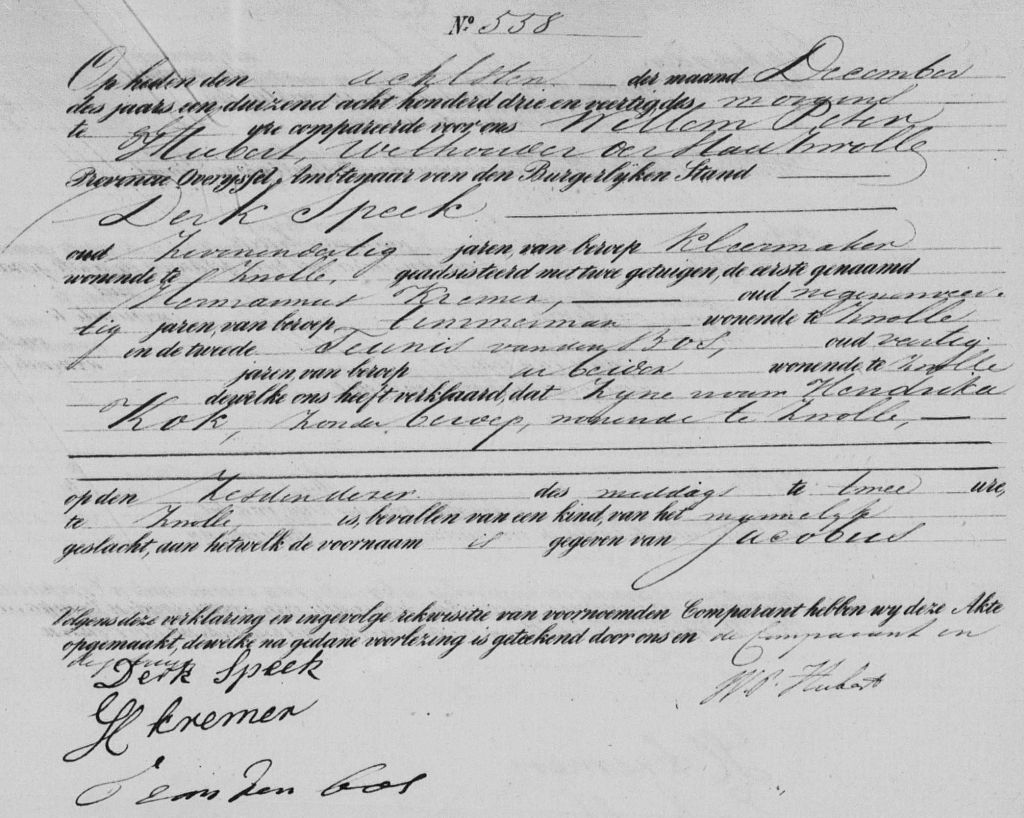 No. 558
Op heden den achtsten der maand December
des jaars een duizend acht honderd drie en veertig, des morgens
te elf ure compareerde voor ons Willem Peter
Hubert, Wethouder der Stad Zwolle
Provincie Overijssel, Ambtenaar van den Burgerlyken Stand
Derk Speek
oud zevenendertig jaren, van beroep kleermaker
wonende te Zwolle, geadsisteerd met twee getuigen, de eerste genaamd
Hermannus Kremer, oud negenenveer-
tig jaren, van beroep timmerman wonende te Zwolle
en de tweede Teunis van den Bos, oud veertig
jaren, van beroep arbeider wonende te Zwolle
dewelke ons heeft verklaard, dat zyne vrouw Hendrika
Kok, zonder beroep, wonende te Zwolle,
op den zesden dezer des middags te twee ure,
te Zwolle is, bevallen van een kind, van het mannelyk
geslacht, aan hetwelk de voornaam is gegeven van Jacobus
Volgens deze verklaring en ingevolge rekwisitie van voornoemden Comparant hebben wy deze Akte
opgemaakt, dewelke na gedane voorlezing is geteekend door ons en de Comparant en
Derk Speek
W. P. Hubert
H kremer
T van den bos